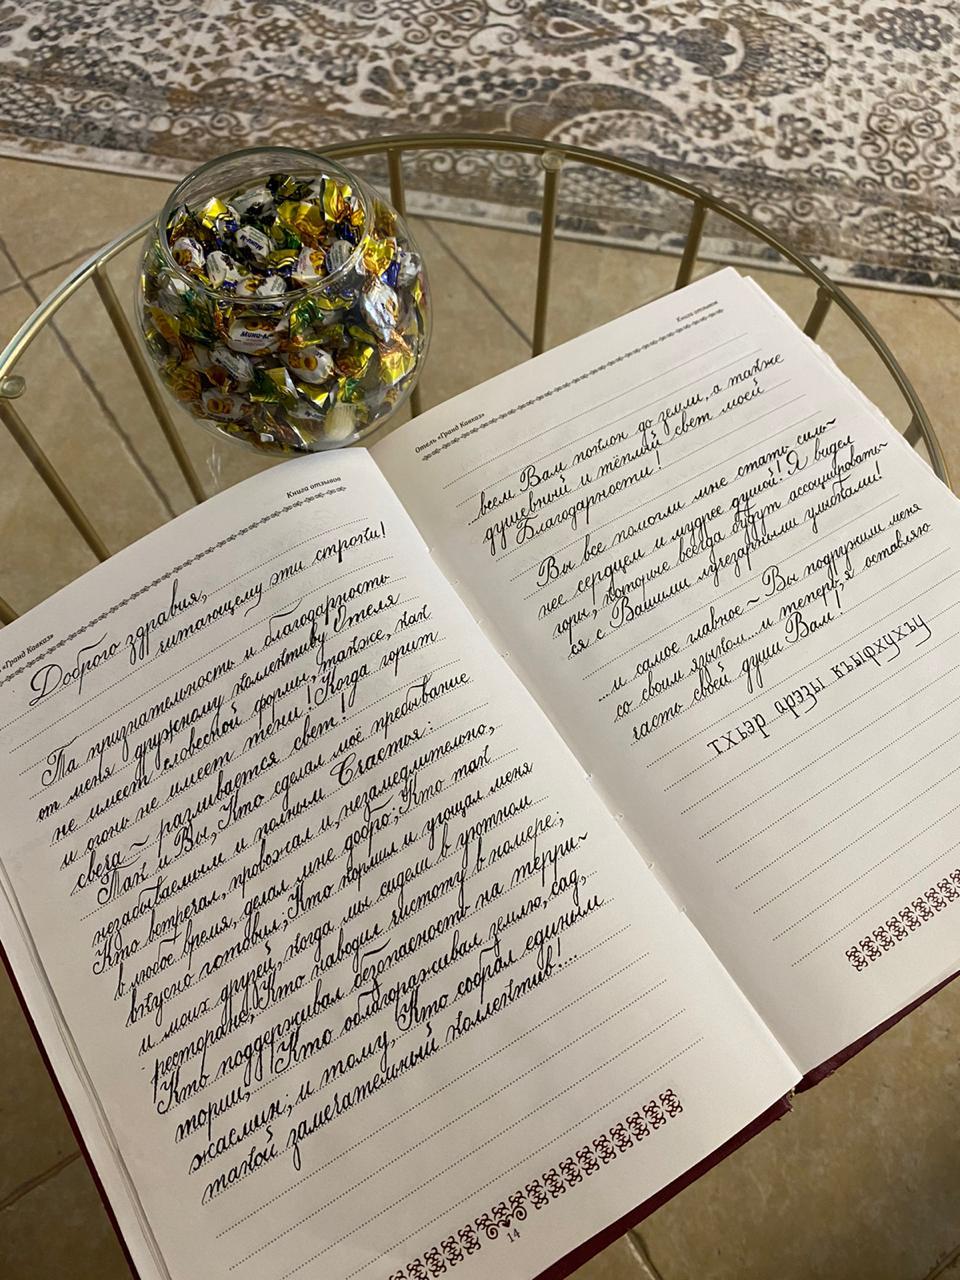 Мини-
Книга отзывов
«Гранд Кавказ»
Доброго здравия,
читающему эти строки!
Та признательность и благодарность
от меня дружному коллективу Отеля
не имеет словесной формы, также, как
и огонь не имеет тени! Когда горит
свеча ~ разливается свет!
Так и Вы, Кто сделал моё пребывание
незабываемым и полным Счастья:
Кто встречал, провожал и, незамедлительно,
в любое время, делал мне добро; Кто так
вкусно готовил; Кто кормил и угощал меня
и моих друзей, когда мы сидели в уютном
ресторане; Кто наводил чистоту в номере;
Кто поддерживал безопасность на терри~
тории... Кто облагораживал землю, сад,
жасмин; и тому, Кто собрал единым
такой замечательный коллектив!...
14
Отель «Гранд Кавказ»
Книга отзывов
...всем Вам поклон до земли, а также
душевный и тёплый свет моей
Благодарности!
Вы все помогли мне стать силь~
нее сердцем и мудрее душой! Я видел
горы, которые всегда будут ассоциировать~
ся с Вашими лучезарными улыбками!
...и самое главное ~ Вы подружили меня
со своим языком... и теперь, я оставляю
часть своей души Вам!
тхьэр арэзы къыфхухъу